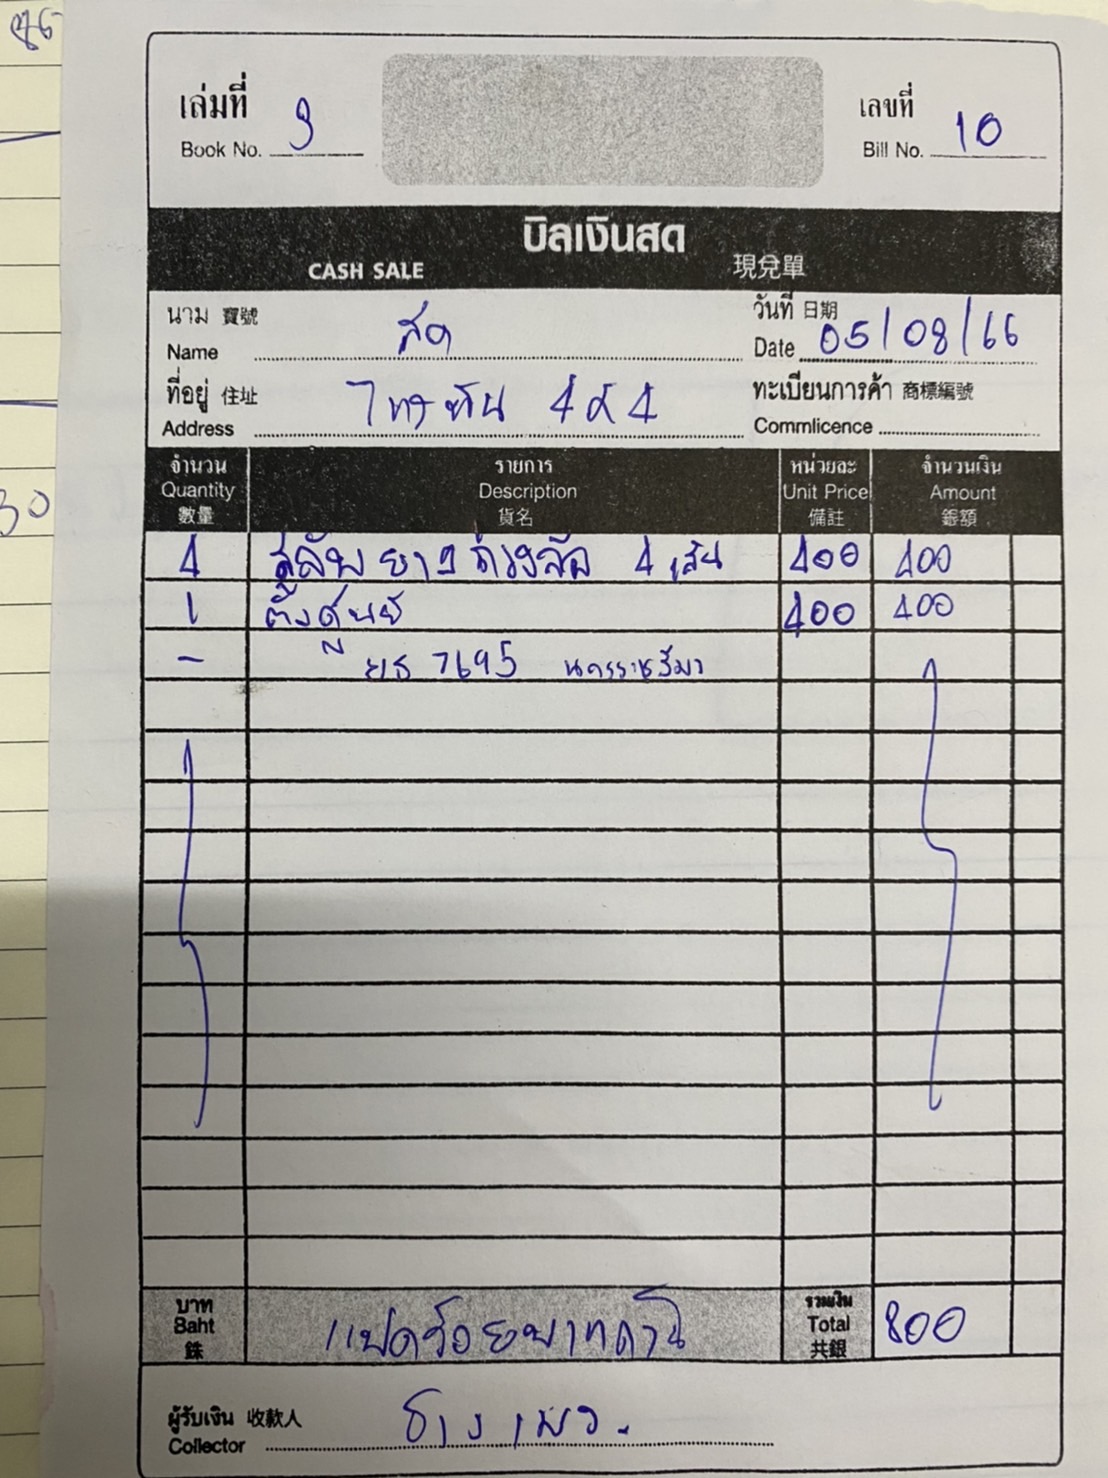 เล่มที่ 9 เลขที่ 10
Book No. Bill No.
บิลเงินสด
CASH SALE 現兌單
นาม 寶號 สด วันที่ 日期
Name Date 05/08/66
ที่อยู่ 住址 ทะเบียนการค้า 商標編號
Address 4x4 Commlicence
จำนวน รายการ หน่วยละ จำนวนเงิน
Quantity Description Unit Price Amount
數量 貨名 備註 銀額
4 สลับยางถ่วงล้อ 4 เส้น 400 400
1 ตั้งศูนย์ 400 400
- ยธ 7695 นครราชสีมา
บาท แปดร้อยบาทถ้วน รวมเงิน 800
Baht Total
銖 共銀
ผู้รับเงิน 收款人
Collector
30